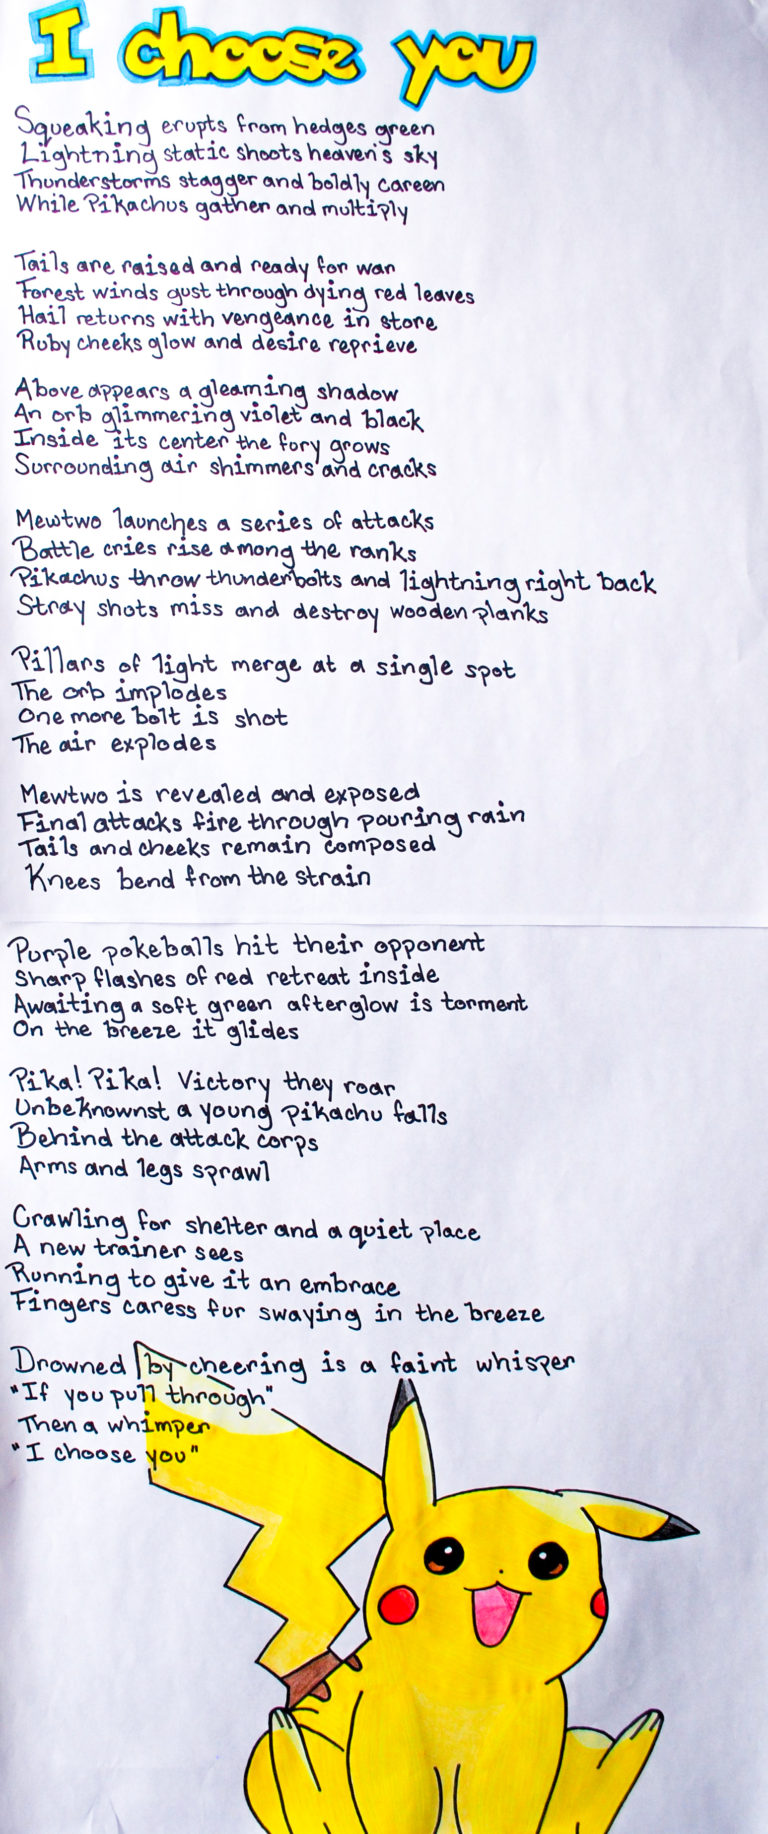 I choose you
Squeaking erupts from hedges green
Lightning static shoots heaven's sky
Thunderstorms stagger and boldly careen
While Pikachus gather and multiply
Tails are raised and ready for war
Forest winds gust through dying red leaves
Hail returns with vengeance in store
Ruby cheeks glow and desire reprieve
Above appears a gleaming shadow
An orb glimmering violet and black
Inside its center the fory grows
Surrounding air shimmers and cracks
Mewtwo launches a series of attacks
Battle cries rise among the ranks
Pikachus throw thunderbolts and lightning right back
Stray shots miss and destroy wooden planks
Pillars of light merge at a single spot
The orb implodes
One more bolt is shot
The air explodes
Mewtwo is revealed and exposed
Final attacks fire through pouring rain
Tails and cheeks remain composed
Knees bend from the strain
Purple pokeballs hit their opponent
Sharp flashes of red retreat inside
Awaiting a soft green afterglow is torment
On the breeze it glides
Pika! Pika! Victory they roar
Unbeknownst a young pikachu falls
Behind the attack corps
Arms and legs sprawl
Crawling for shelter and a quiet place
A new trainer sees
Running to give it an embrace
Fingers caress fur swaying in the breeze
Drowned by cheering is a faint whisper
"If you pull through"
Then a whimper
"I choose you"